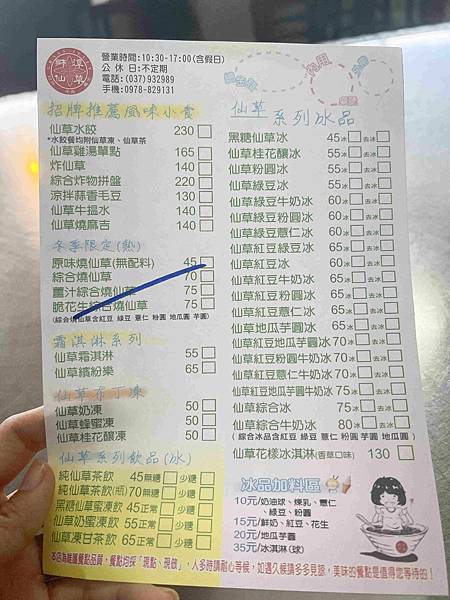 師 淳
仙 草
營業時間:10:30-17:00(含假日)
公休日:不定期
電話:(037)932989
手機:0978-829131
內用
外帶
桌號
招牌推薦風味小食
仙草水餃 230
*水餃餐均附仙草凍、仙草茶
仙草雞湯單點 165
炸仙草 140
綜合炸物拼盤 220
涼拌蒜香毛豆 130
仙草牛搵水 140
仙草燒麻吉 140
冬季限定(熱)
原味燒仙草(無配料) 45
綜合燒仙草 70
薑汁綜合燒仙草 75
脆花生綜合燒仙草 75
(綜合燒仙草含紅豆 綠豆 薏仁 粉圓 地瓜圓 芋圓)
霜淇淋系列
仙草霜淇淋 55
仙草繽紛樂 65
仙草布丁凍
仙草奶凍 50
仙草蜂蜜凍 50
仙草桂花釀凍 50
仙草系列飲品(冰)
純仙草茶飲 45無糖 少糖
純仙草茶飲(瓶)70無糖 少糖
黑糖仙草蜜凍飲45正常 少糖
仙草奶蜜凍飲55正常 少糖
仙草凍甘茶飲 65正常 少糖
仙草系列冰品
黑糖仙草凍冰 45冰 去冰
仙草桂花釀冰 55冰 去冰
仙草粉圓冰 55冰 去冰
仙草綠豆冰 55冰 去冰
仙草綠豆牛奶冰 60冰 去冰
仙草綠豆粉圓冰 60冰 去冰
仙草綠豆薏仁冰 60冰 去冰
仙草紅豆綠豆冰 65冰 去冰
仙草紅豆冰 60冰 去冰
仙草紅豆牛奶冰 65冰 去冰
仙草紅豆粉圓冰 65冰 去冰
仙草紅豆薏仁冰 65冰 去冰
仙草地瓜芋圓冰 65冰 去冰
仙草紅豆地瓜芋圓冰70冰 去冰
仙草紅豆粉圓牛奶冰70冰 去冰
仙草紅豆薏仁牛奶冰70冰 去冰
仙草紅豆地瓜芋圓牛奶冰75冰 去冰
仙草綜合冰 75冰 去冰
仙草綜合牛奶冰 80冰 去冰
( 綜合冰品含紅豆 綠豆 薏仁 粉圓 芋圓 地瓜圓 )
仙草花樣冰淇淋(香草口味) 130
冰品加料區
10元/奶油球、煉乳、薏仁、綠豆、粉圓
15元/鮮奶、紅豆、花生
20元/地瓜芋圓
35元/冰淇淋(球)
本店為維護餐點品質，餐點均採「現點、現做」，人多時請耐心等候，如遇久候請多多見諒，美味的餐點是值得您等待的!